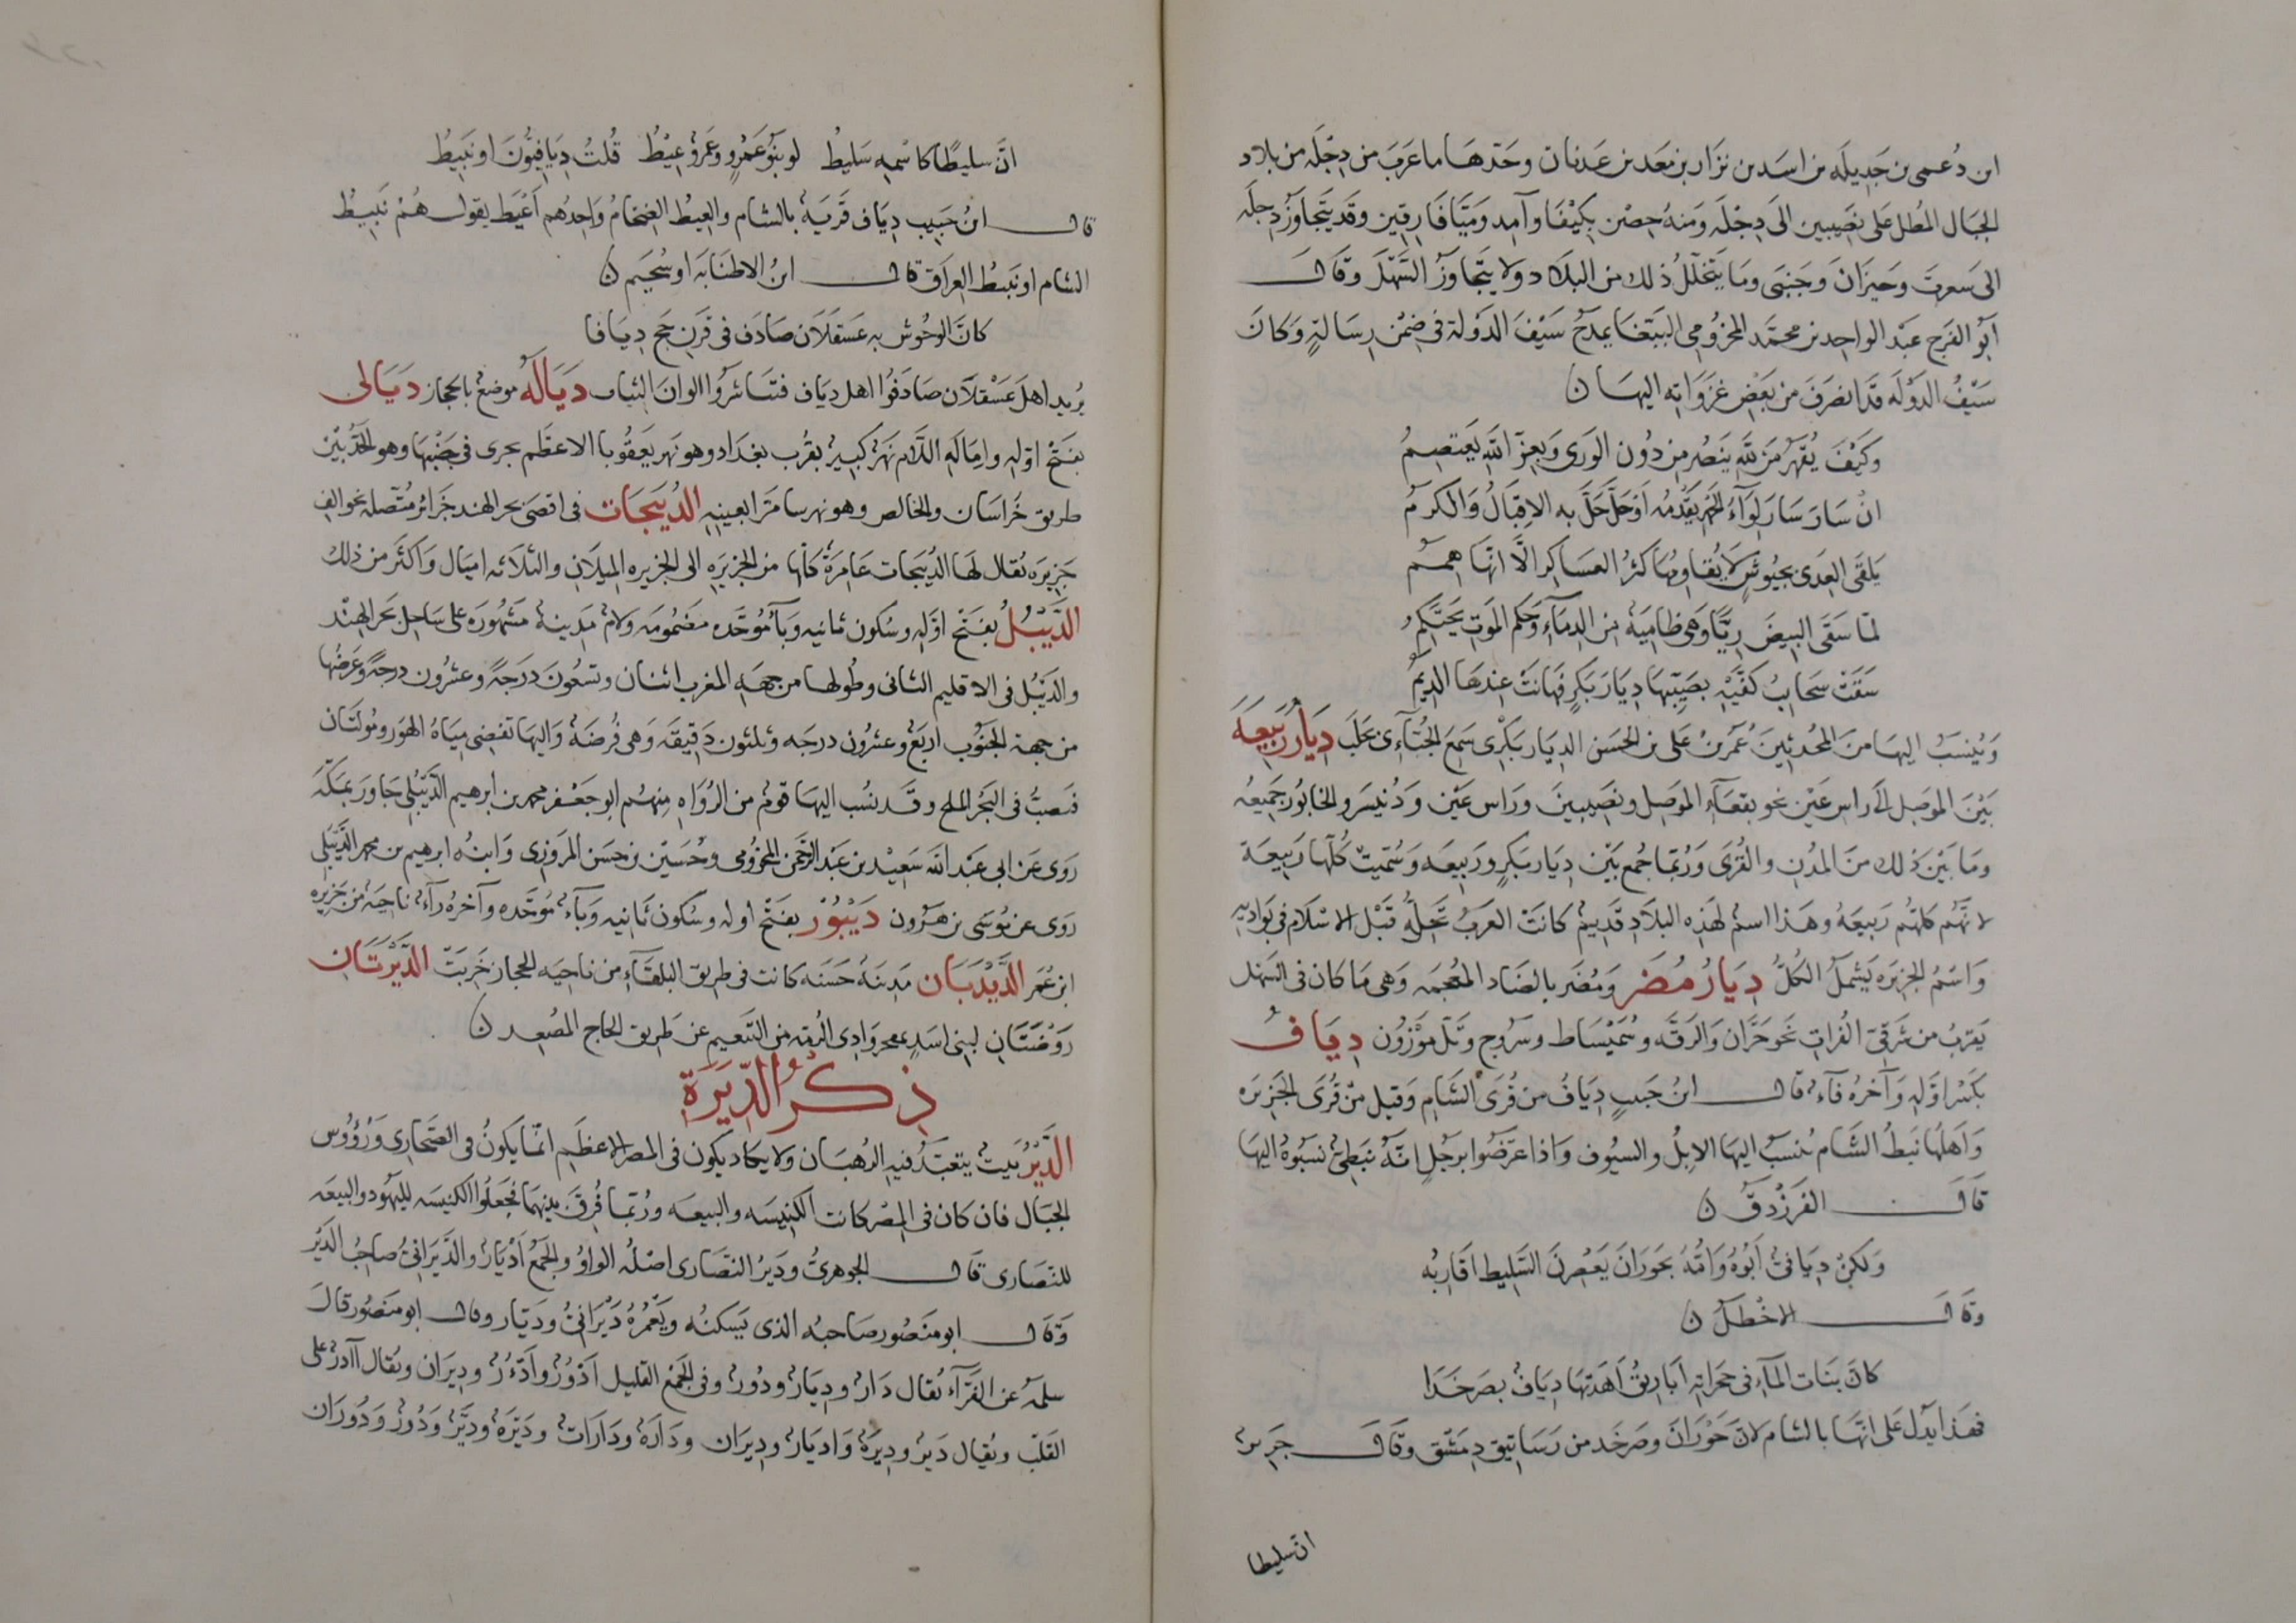 ابن دُعمى بن جَدِيلَه بن اسَد بن نزَار بن مَعَد بن عَدنان وحَدهَا ما غَربَ من دِجْلَه من بلاد
الجبَال المُطل عَلى نصِيبين الىَ دِجْلَه وَمنهُ حِصْن كِيْفَا وآمِد وَمَيَّافَارِقين وقَد يَتجاوَزُ دِجلَه
الى سَعرتَ وَحيزَانَ وَحَينى وَمَا يَتخلّلُ ذلك من البلاَد ولا يتَجاوَزُ السَّهْلَ وقَالَ
أبُو الفَرَج عَبْد الواحِد بن محمَّد المخزُومى الببَّغا يمدَحُ سَيْفَ الدَولة فى ضِمْن رِسَالةٍ وَكانَ
سَيْفُ الدَوْلَه قَد انصَرفَ من بعَضِ غزَوَاتِه اليهَا ن
وَكيْفَ يُقهَرُ مَنْ لله يَنصُر من دُون الوَرى وَبعِزّ الله يَعتصِمُ
انْ سَارَ سَارَ لِوَآءُ الحَمْدِ يقَدُمُه اوْ حَلَّ حَلَّ به الاِقبَالُ وَالكرمُ
يَلقَى العِدَى بجيُوشٍ لاَ يُقَاومُهَا كثرُ العسَاكِر الاّ انّهَا هِمَمُ
لمّا سَقَى البيِضَ ريًّا وَهى ظامِيَهٌ من الدِمَآءِ وَحَكم الموَتِ يَحتَكِمُ
سَقَتْ سَحابُ كفَّيْهِ بصَيِّبهَا دِيَارَ بَكرٍ فَهانَتْ عِندهَا الدِيَمُ
وَيُنسَبُ اليهَا من المحُدِثينَ عُمَر بن عَلى بن الحسَن الديَار بَكْرى سَمِعَ الجُبّآءِى بحَلَب دِيَارُ رَبيعَه
بَيْنَ الموَصِل الَى راس عَيْن نحو بقعَآءِ الموَصِل ونصِيبينَ ورَاس عَيْن وَدُنيسَر والخابُور جَميعُه
ومَا بَيْنَ ذلك منَ المدُنِ والقُرَى وَرُبمَا جُمِعَ بَيْن دِيَار بَكرٍ ورَبيعَه وَسُمّيتْ كُلّهَا رَبيعَة
لانهَُّم كلهَُّم رَبيعَهُ وهَذا اسمُ لهَذِه البلاَد قدَيمٌ كانَتْ العَرَبُ تحَلّهُ قَبْل الاسْلاَم فى بَوادِيه
وَاسْمُ الجزيَره يَشمَلُ الكُلَّ دِيَارُ مُضَر وَمُضَر بالضَاد المعُجمَه وَهى مَا كان فى السَهْل
يَقرُب من شَرقىّ الفُراتِ نَحوَ حَرَّان وَالرَقَّه وشُمَيْسَاط وسَرُوج وتَلّ مَوْزَوُن دِيَافُ
بكَسْر اوَّلِه وَآخرُه فآءٌ قال ابنُ حَبيبٍ دِيَافُ من قُرَى الشَامِ وَقيل منْ قُرَى الجَزيرَه
وَاهلُهَا نَبَطُ الشَام تُنسَبُ اليهَا الابِلُ والسيُوف وَاذا عرَضُوا برَجُلٍ انّهُ نَبطِىٌّ نسَبُوهُ اليهَا
قَالَ الفَرزْدَقُ ن
وَلكِنْ دِيَافىٌّ أبُوهُ وَامُّهُ بحَورَانَ يَعصِرنَ السَّلِيط اقارِبُه
وقَالَ الاخْطَلُ ن
كانَّ بَنات المآءِ فى حَجرَاتِه اَبَاريقُ اَهدَتهَا دِيَافُ بصَرخَدَا
فهَذا يَدُل عَلى انَّهَا بالشام لانَّ حَوْرَانَ وصَرخَد من رَسَاتيق دِمَشْق وقَالَ جَرير
ان سليطا
انَّ سليطًا كاسْمِه سَليطُ لو بنُو عَمْرٍو وعَمروٌ عِيْطُ قُلتُ دِيَافيُّونَ او نَبيطُ
قال ابنُ حَبيب دِيَاف قَريَهٌ بالشام والعِيطُ الضخامُ وَاحِدُهم اَعْيَط يقول هُمْ نَبيطُ
الشام او نَبيطُ العِرَاق قال ابنُ الاطنَابَه او سُحَيم ن
كانَّ الوحُوش به عَسقَلاَن صَادَف فى قَرنِ حَجٍ دِيَافا
يُريد اهلَ عَسْقلاَن صَادَفُوا اهل دِيَاف فتنَاشَرُوا الوانَ الثياب دَيَالَهُ موَضعٌ بالحجَاز دَيَالى
بفَتْح اوّله وامَالَه اللاَّم نَهرٌ كبَيرٌ بقُرب بغدَاد وهو نَهر بعَقُوبا الاعظَم يجرى فى جَنبْهَا وهو الحَدُّ بَيْن
طريق خَرَاسَان والخالِص وهو نهر سامَرّا بعينهِ الدُيَبجَات فى اقصَى بحر الهند جَزائر مُتّصله نحو الفِ
جَزيرَه يُقال لهَا الدُيبَجات عَامِرَةٌ كلّهَا من الجزيَرِه الى الجزيرِه الميِلاَنِ والثلاَثه امَيَال وَاكثَر من ذلك
الدَّيْبُلُ بفَتْح اوَّلِه وسُكون ثانيه وَبآ مُوَحَّده مضَمُومَه ولامٌ مَدينهٌ مَشهُورَه على سَاحِل بَحر الهِنْد
والدَيبُل فى الاقليم الثانى وطُولهَا من جهَهِ المغرب اثنان وتسعُونَ دَرَجَهً وعشرُون درجَهً وعَرضُها
من جهةِ الجنُوب اربَعٌ وعشرُون درجَه وثلثون دَقيقَه وَهى فُرضَهٌ وَاليهَا تفضِى مِيَاهُ لهَوَر ومُولتَان
فتَصبُّ فى البَحْر الملح وقد نُسب اليهَا قومٌ من الرُوَاه منِهُم ابو جعَفر محمد بن ابرهيم الدَّيْبُلى جَاوَر بمَكّهَ
رَوَى عَن ابى عَبْد الله سَعيْد بن عَبْد الرَحَمن المخزُومى وحُسَيْن بن حسَن المرَوَزى وَابنُه ابرهيم بن محمد الدَّيْبُلى
رَوى عن مُوسَى بن هَرُون دَيْبُوْر بفَتْح اوله وسُكون ثَانيه وَبَآء مُوَحَّده وآخرُه رآءٌ ناحِيَهٌ من جَزيره
ابن عُمَر الدَّيْدَبَان مَدِينَهٌ حَسَنَه كانت فى طَريق البلقَآءِ من ناحِيَه الحجاز خَرِبَتْ الدَّيْرتَان
رَوْضَتَان لبنى اسَدٍ بمفجر وَادِى الرُمّه من التَنعيم عن طَريق الحاج المصُعِد ن
ذِكرُ الدِّيَرَةِ
الدَّيْرُ بيَتٌ يتعَبّدُ فيهِ الرُهبَان ولا يكاد يكون فى المصر الاعظَم انّما يكونُ فى الصَحارى ورُؤُوس
الجبَال فان كان فى المِصْر كانت الكنِيسَه والبيعَه ورُبّما فُرقَ بيَنهُمَا فجَعَلُوا الكنيسَه لليَهُود والبيعَه
للنصَارى قَال الجوهرىُّ ودَيرُ النصَارى اصْلُه الوَاوُ والجَمْعُ اَدْيَارٌ والدَّيَرَانىُّ صاحبُ الدَيْر
وَقال ابو منصُور صَاحبُه الذى يَسكنُه ويَعْمُرُهُ دَيْرَانىٌّ وديَّار وقال ابو منَصُور قالَ
سلمَه عن الفَرَّآءِ يُقال دَارٌ ودِيَارٌ ودُورٌ وفى الجَمْع القليل اَدْوُرٌ واَدْءُرٌ ودِيرَان ويُقال آدُرٌ على
القَلْب ويُقيال دَيرٌ ودِيَرَهٌ وَاديَارٌ ودِيرَان ودَارَهٌ ودَارَاتٌ وديَرَهٌ ودَيَّرٌ وَدُورٌ ودُورَان